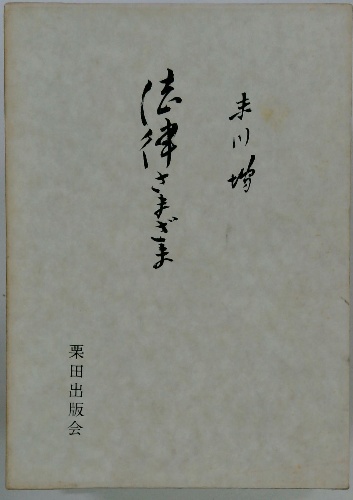 末川博
法律さまざま
栗田出版会